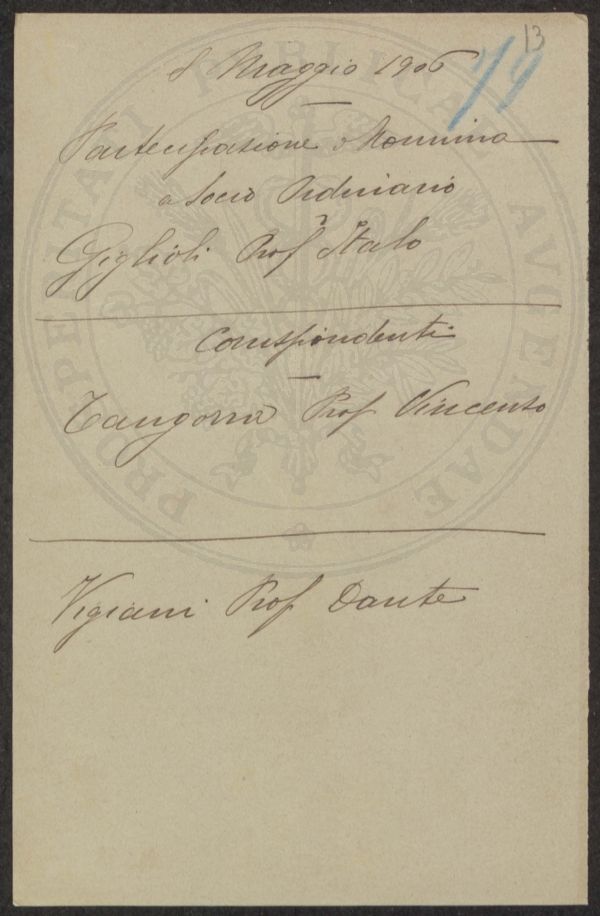 13
79
8 Maggio 1906
Partecipazione Nomina
a Socio Ordinario
Giglioli Prof Italo
Corrispondenti
Tangorra Prof Vincenzo
Vigiani Prof Dante
PROSPERITATI PUBLICAE AUGENDAE